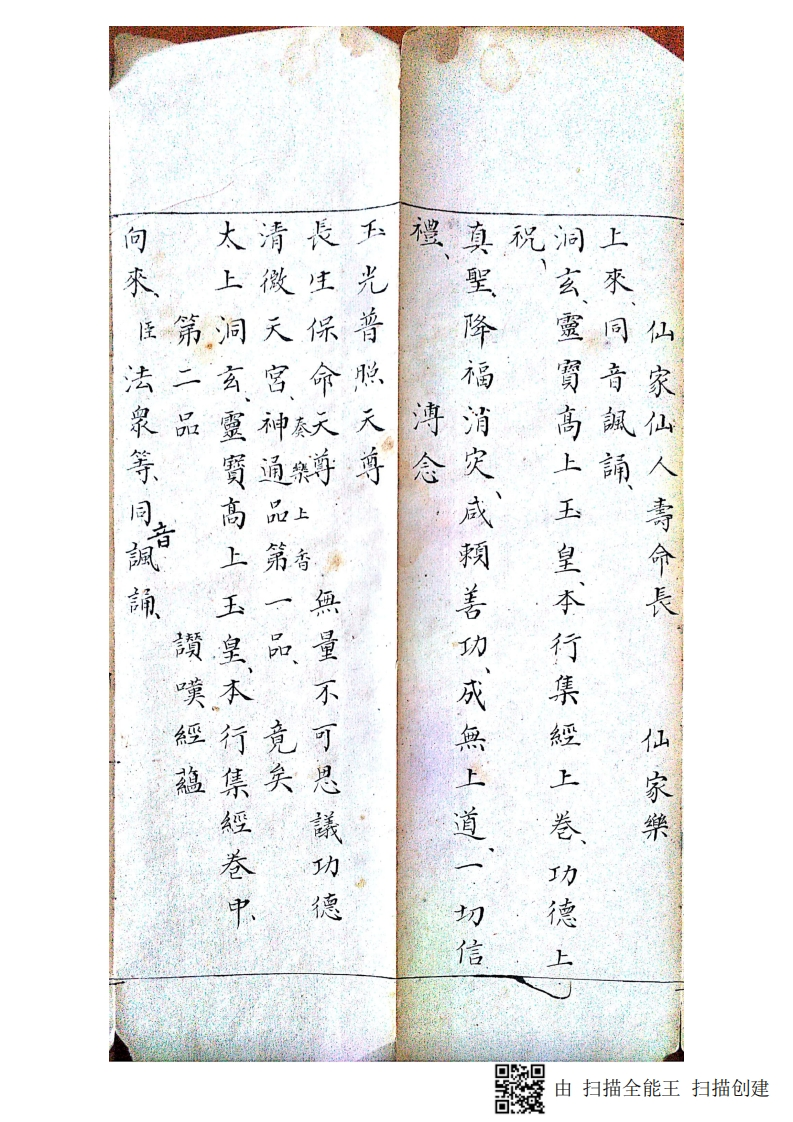 仙家仙人壽命長　仙家樂
上來、同音諷誦、
洞玄、靈寶高上玉皇、本行集經上卷、功德上
祝、
真聖、降福消灾、咸賴善功、成無上道、一切信
禮、　溥念
玉光普照天尊
長生保命天尊　無量不可思議功德
奏樂上香
清微天宮、神通品第一品、竟矣
太上洞玄、靈寶高上玉皇、本行集經卷中、
第二品　讚嘆經蘊
向來、臣法衆等、同音諷誦、
由 扫描全能王 扫描创建